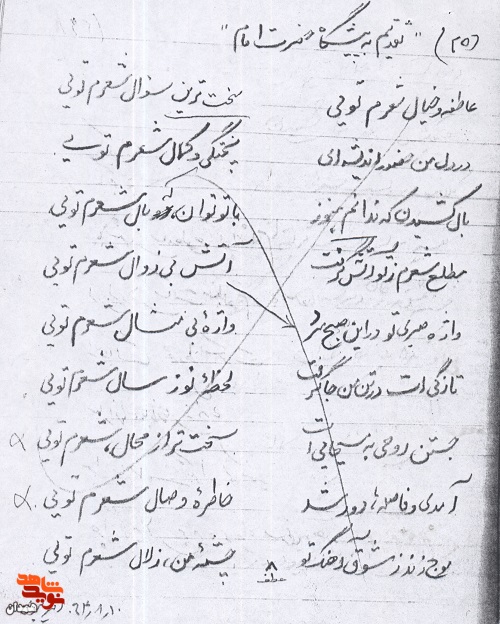 (۲۵) "تقدیم به پیشگاه حضرت امام"
عاطفه و خیال شعرم تویی سخت‌ترین سؤال شعرم تویی
در دل من حضور اندیشه‌ای پختگی و کمال شعرم تویی
بال کشیدن که ندانم هنوز با تو توان، پر و بال شعرم تویی
مطلع شعرم ز تو آتش گرفت آتش بی زوال شعرم تویی
واژه صبری تو در این صبح واژهٔ بی مثال شعرم تویی
تازگی‌ات در تن من جا گرفت لحظهٔ نوز سال شعرم تویی
جستن روحی به مسیحایی‌ات سخت‌تر از محال، شعرم تویی
آمدی و فاصله‌ها دور شد خاطرهٔ وصال شعرم تویی
موج زند ز شوق آهنگ تو چشمهٔ من، زلال شعرم تویی
۸
شاهد
نوید